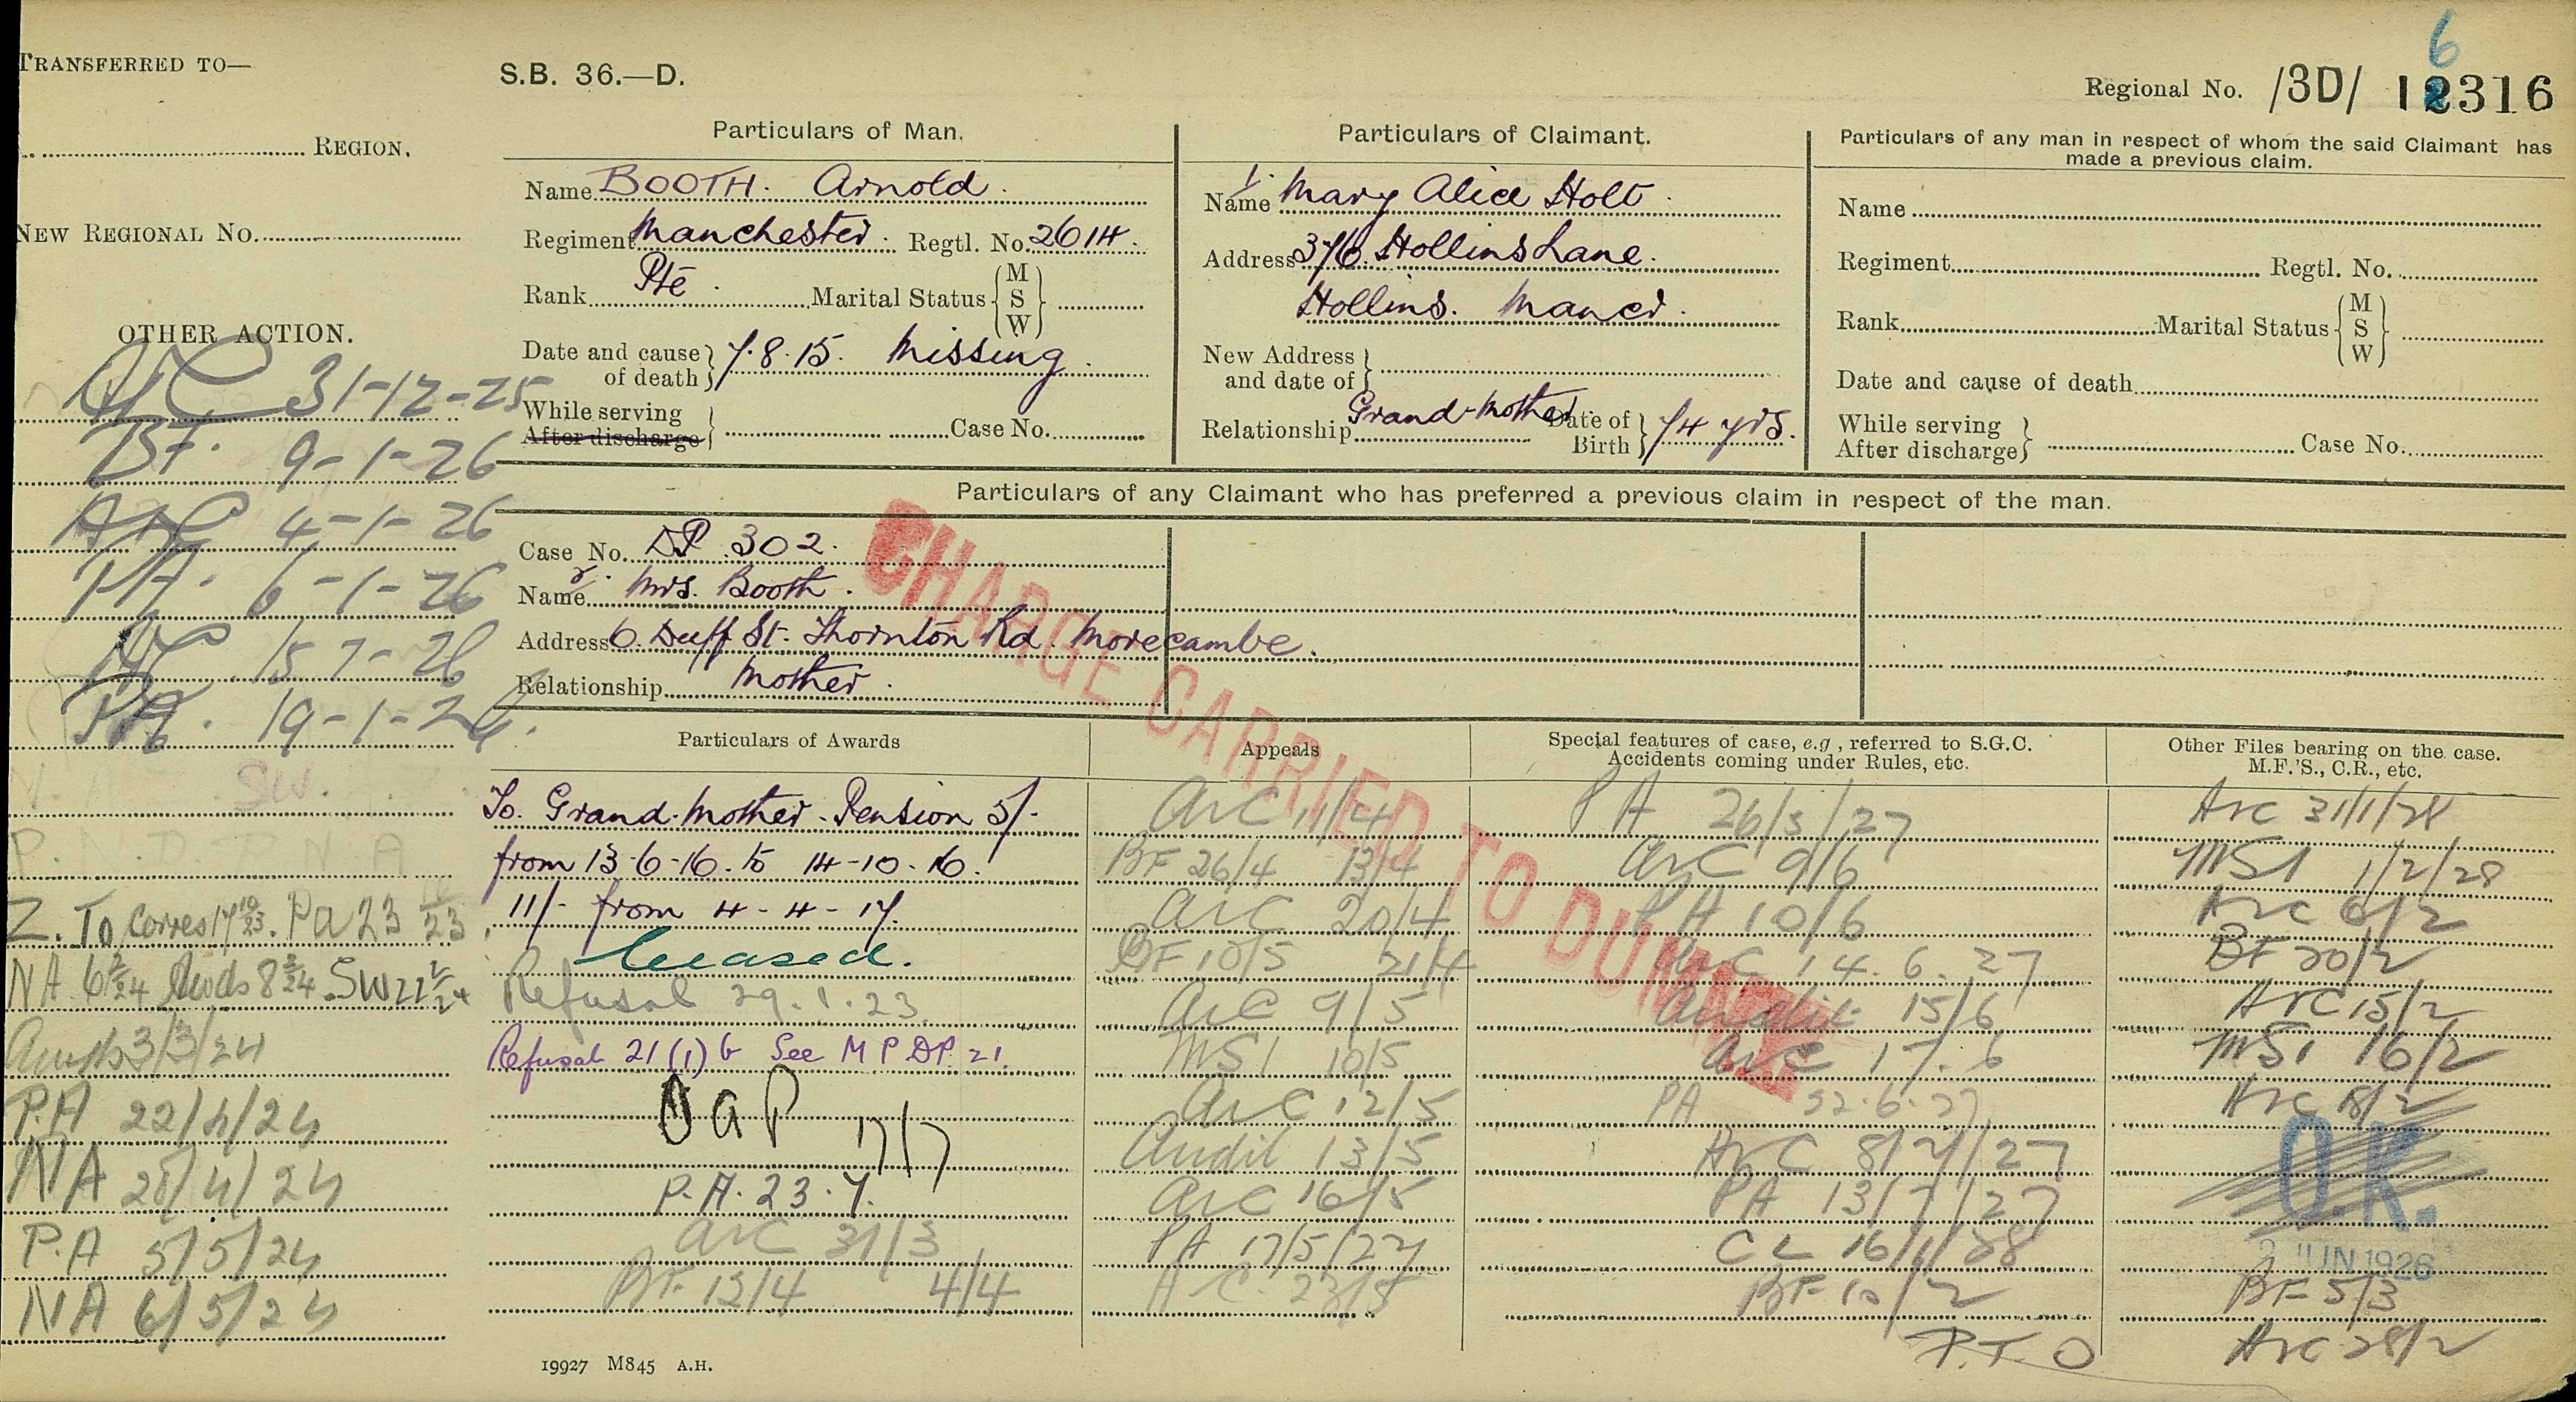 TRANSFERRED TO—
REGION.
NEW REGIONAL No.
OTHER ACTION.
31-12-25
BF. 9-1-26
4-1-26
PA. 6-1-26
PA. 19-1-26
SW.
Z. To Corres 17 10/23. Pa 23 23
NA 6 2/24 8 2/24 . SW 22 2/24
3/3/24
P.A 22/4/24
NA 28/4/24
P.A 5/5/24
NA 6/5/24
S.B. 36.—D.
6
Regional No. /3D/ 12316
Particulars of Man.
Name BOOTH. Arnold.
Regiment Manchester. Regtl. No. 2614.
Rank Pte. Marital Status { M S W }
Date and cause of death } 7.8.15. Missing.
While serving
After discharge } Case No.
Particulars of Claimant.
1. Name Mary Alice Holt.
Address 376. Hollins Lane.
Hollins. Mancr.
New Address and date of }
Relationship Grand-Mother Date of Birth } 74 yrs.
Particulars of any man in respect of whom the said Claimant has made a previous claim.
Name
Regiment Regtl. No.
Rank Marital Status { M S W }
Date and cause of death
While serving
After discharge } Case No.
Particulars of any Claimant who has preferred a previous claim in respect of the man.
Case No. DP 302.
2. Name Mrs. Booth.
Address 6. Duff St. Thornton Rd. Morecambe.
Relationship Mother.
CHARGE CARRIED TO DUMMY
Particulars of Awards
To. Grand-Mother - Pension 5/-
from 13-6-16. to 14-10-16.
11/- from 4-4-17.
Ceased.
Refusal 29.1.23.
Refusal 21(1)b See M P DP. 21.
OaP 17/7
P.A. 23.7.
ArC 31/3
BF. 12/4 4/4
Appeals
ArC 11/4
BF 26/4 13/4
ArC 20/4
BF 10/5 21/4
ArC 9/5
MS1 10/5
ArC 12/5
Audit 13/5
ArC 16/5
PA 17/5/27
Special features of case, e.g., referred to S.G.C.
Accidents coming under Rules, etc.
PA 26/5/27
ArC 9/6
PA 10/6
ArC 14.6.27
Audit 15/6
ArC 17.6
PA 22.6.27
ArC 8/7/27
PA 13/7/27
CL 16/1/28
BF 10/2
P.T.O
Other Files bearing on the case.
M.F.'S., C.R., etc.
Arc 31/1/28
MS1 1/2/28
Arc 6/2
BF 20/2
Arc 15/2
MS1 16/2
Arc 18/2
O.K.
2 JUN 1926
BF 5/3
Arc 28/2
19927 M845 A.H.